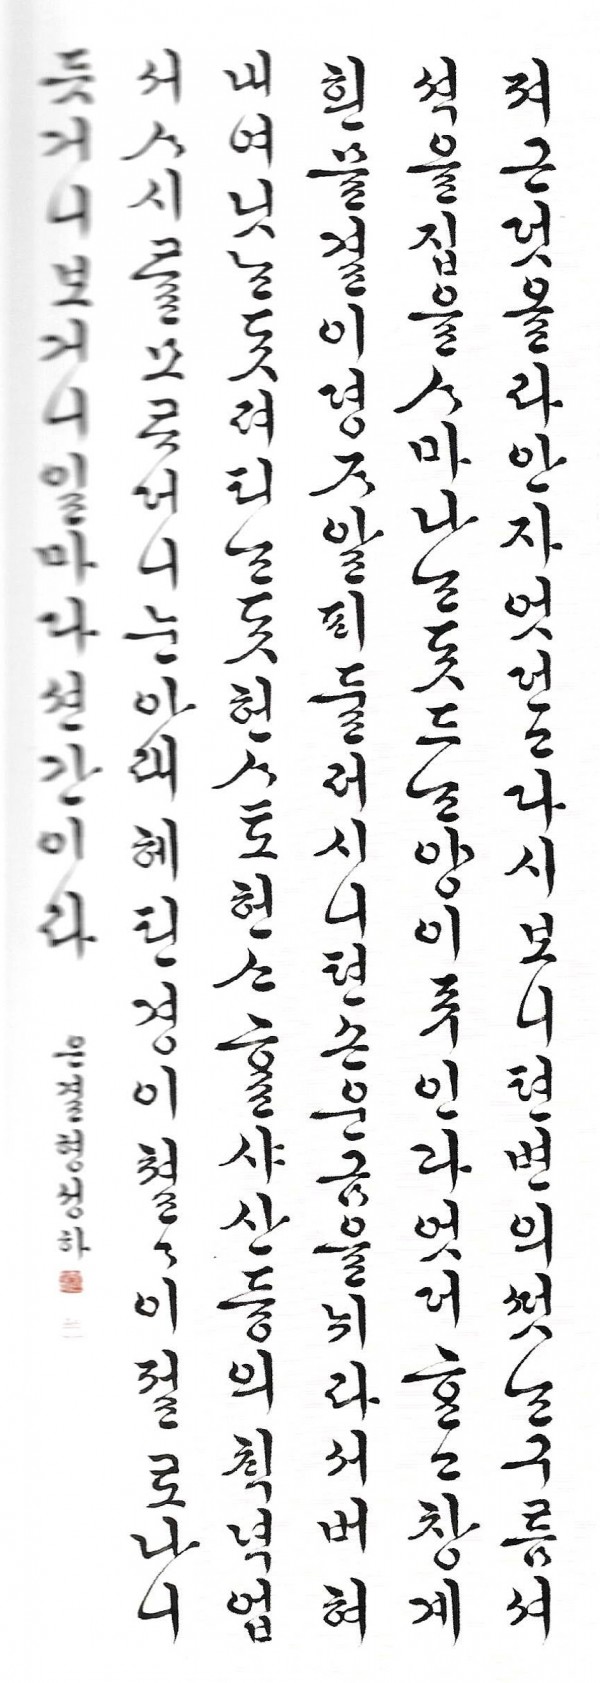 져근덧올라안자엇던고다시보니텬변의썻ᄂᆞᆫ구름셔
셕을집을ᄉᆞ마나ᄂᆞᆫ듯드ᄂᆞᆫ양이쥬인과엇더ᄒᆞᆫ고창계
흰믈결이뎡ᄌᆞ알ᄑᆡ둘러시니텬손운금을뉘라셔버혀
내여닛ᄂᆞᆫ듯펴티ᄂᆞᆫ듯헌ᄉᆞ토헌ᄉᆞᄒᆞᆯ샤산듕의ᄎᆡᆨ녁업
서ᄉᆞ시ᄅᆞᆯ모ᄅᆞ더니눈아래헤틴경이쳘쳘이절로나니
듯거니보거니일마다션간이라
은결